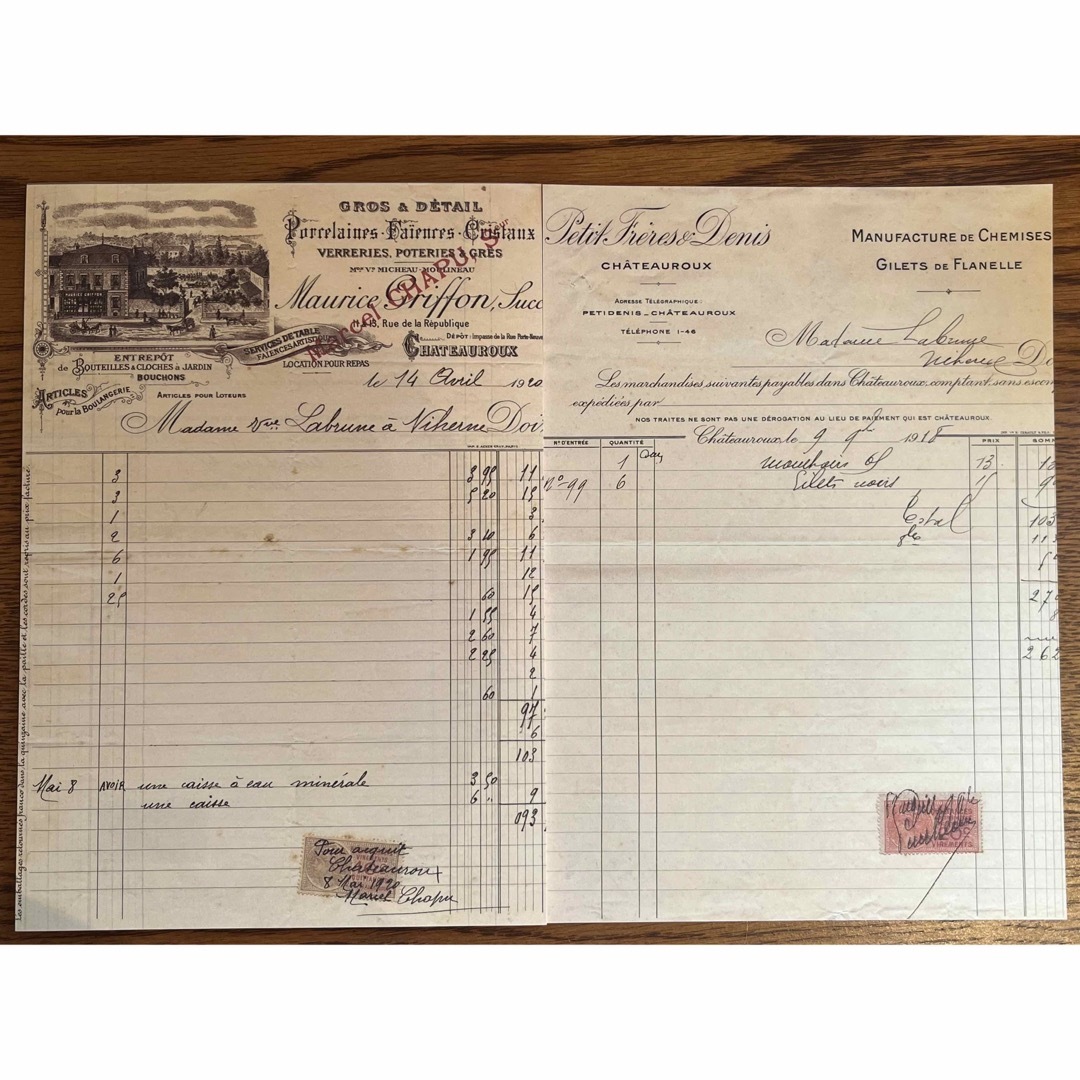 GROS & DÉTAIL
Porcelaines · Faïences · Cristaux
VERRERIES, POTERIES & GRÈS
Mon Ve MICHEAU-MOULINEAU
Maurice Griffon, Succ
Marcel CHAPU Sur
11 & 13, Rue de la République
DÉPÔT: Impasse de la Rue Porte-Neuve
CHATEAUROUX
MAURICE GRIFFON
SERVICES DE TABLE
FAÏENCES ARTIST
LOCATION POUR REPAS
ENTREPÔT
de BOUTEILLES & CLOCHES à JARDIN
BOUCHONS
ARTICLES
pour la BOULANGERIE
ARTICLES POUR LOTEURS
le 14 Avril 1920
Madame Vve Labrune à Niherne Doit
Les emballages retournés franco dans la quinzaine avec la paille et les cordes sont repris au prix facturé.
3 3 95 11
3 5 20 15
1 3
2 3 10 6
6 1 95 11
1 12
25 60 15
1 55 4
2 60 7
2 25 4
2
60 1
97
6
103
Mai 8 AVOIR une caisse à eau minérale 3 50
une caisse 6 " 9
093
Pour acquit
Châteauroux
8 Mai 1920
Marcel Chapu
Petit Frères & Denis
CHÂTEAUROUX
ADRESSE TÉLÉGRAPHIQUE:
PETIDENIS_CHÂTEAUROUX
TÉLÉPHONE 1-46
MANUFACTURE DE CHEMISES
GILETS DE FLANELLE
Madame Labrune
Niherne Do
Les marchandises suivantes payables dans Châteauroux, comptant, sans escom
expédiées par
NOS TRAITES NE SONT PAS UNE DÉROGATION AU LIEU DE PAIEMENT QUI EST CHÂTEAUROUX.
Châteauroux, le 9 9bre 1918
N° D'ENTRÉE QUANTITÉ PRIX SOMM
1 mouchoirs 13
No 99 6 Gilets noirs
Total 103
113
270
262
VIREMENTS